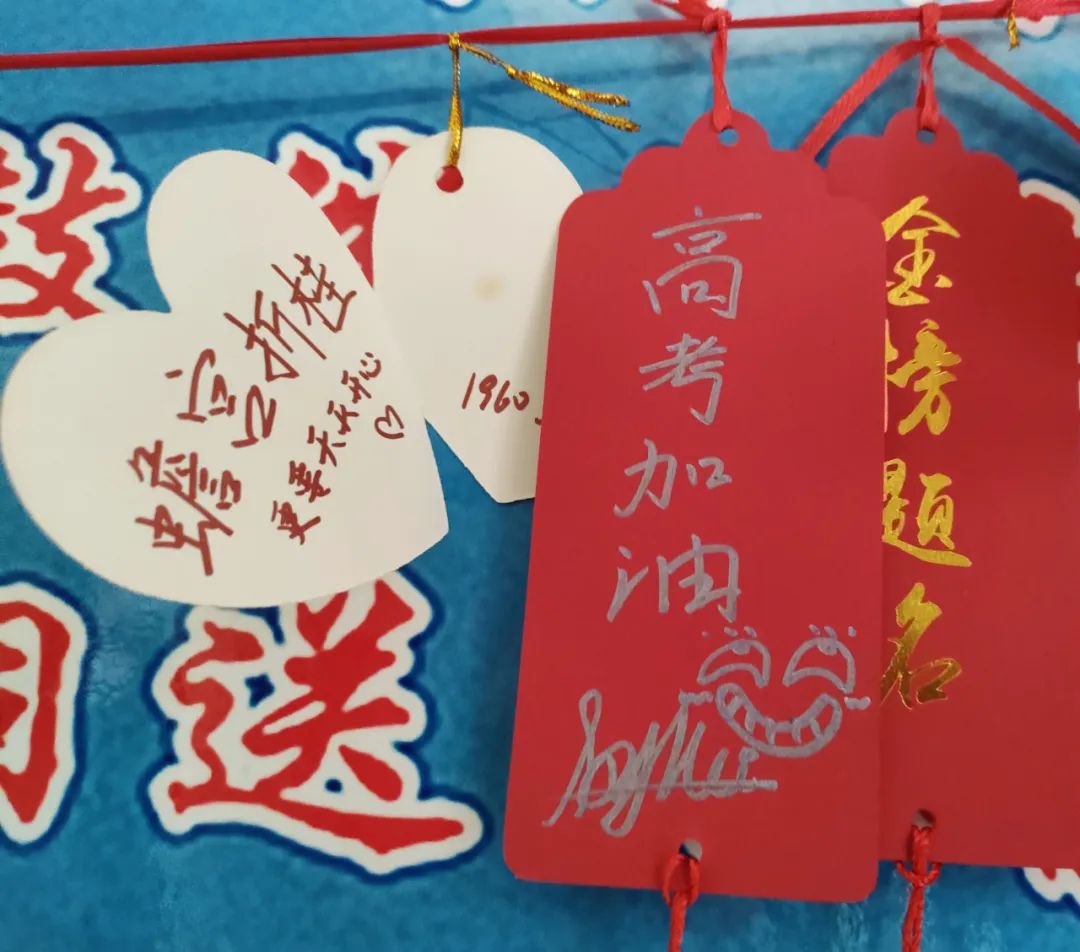 蟾宫折桂
更要天天开心
1960
高考加油
金榜题名
送